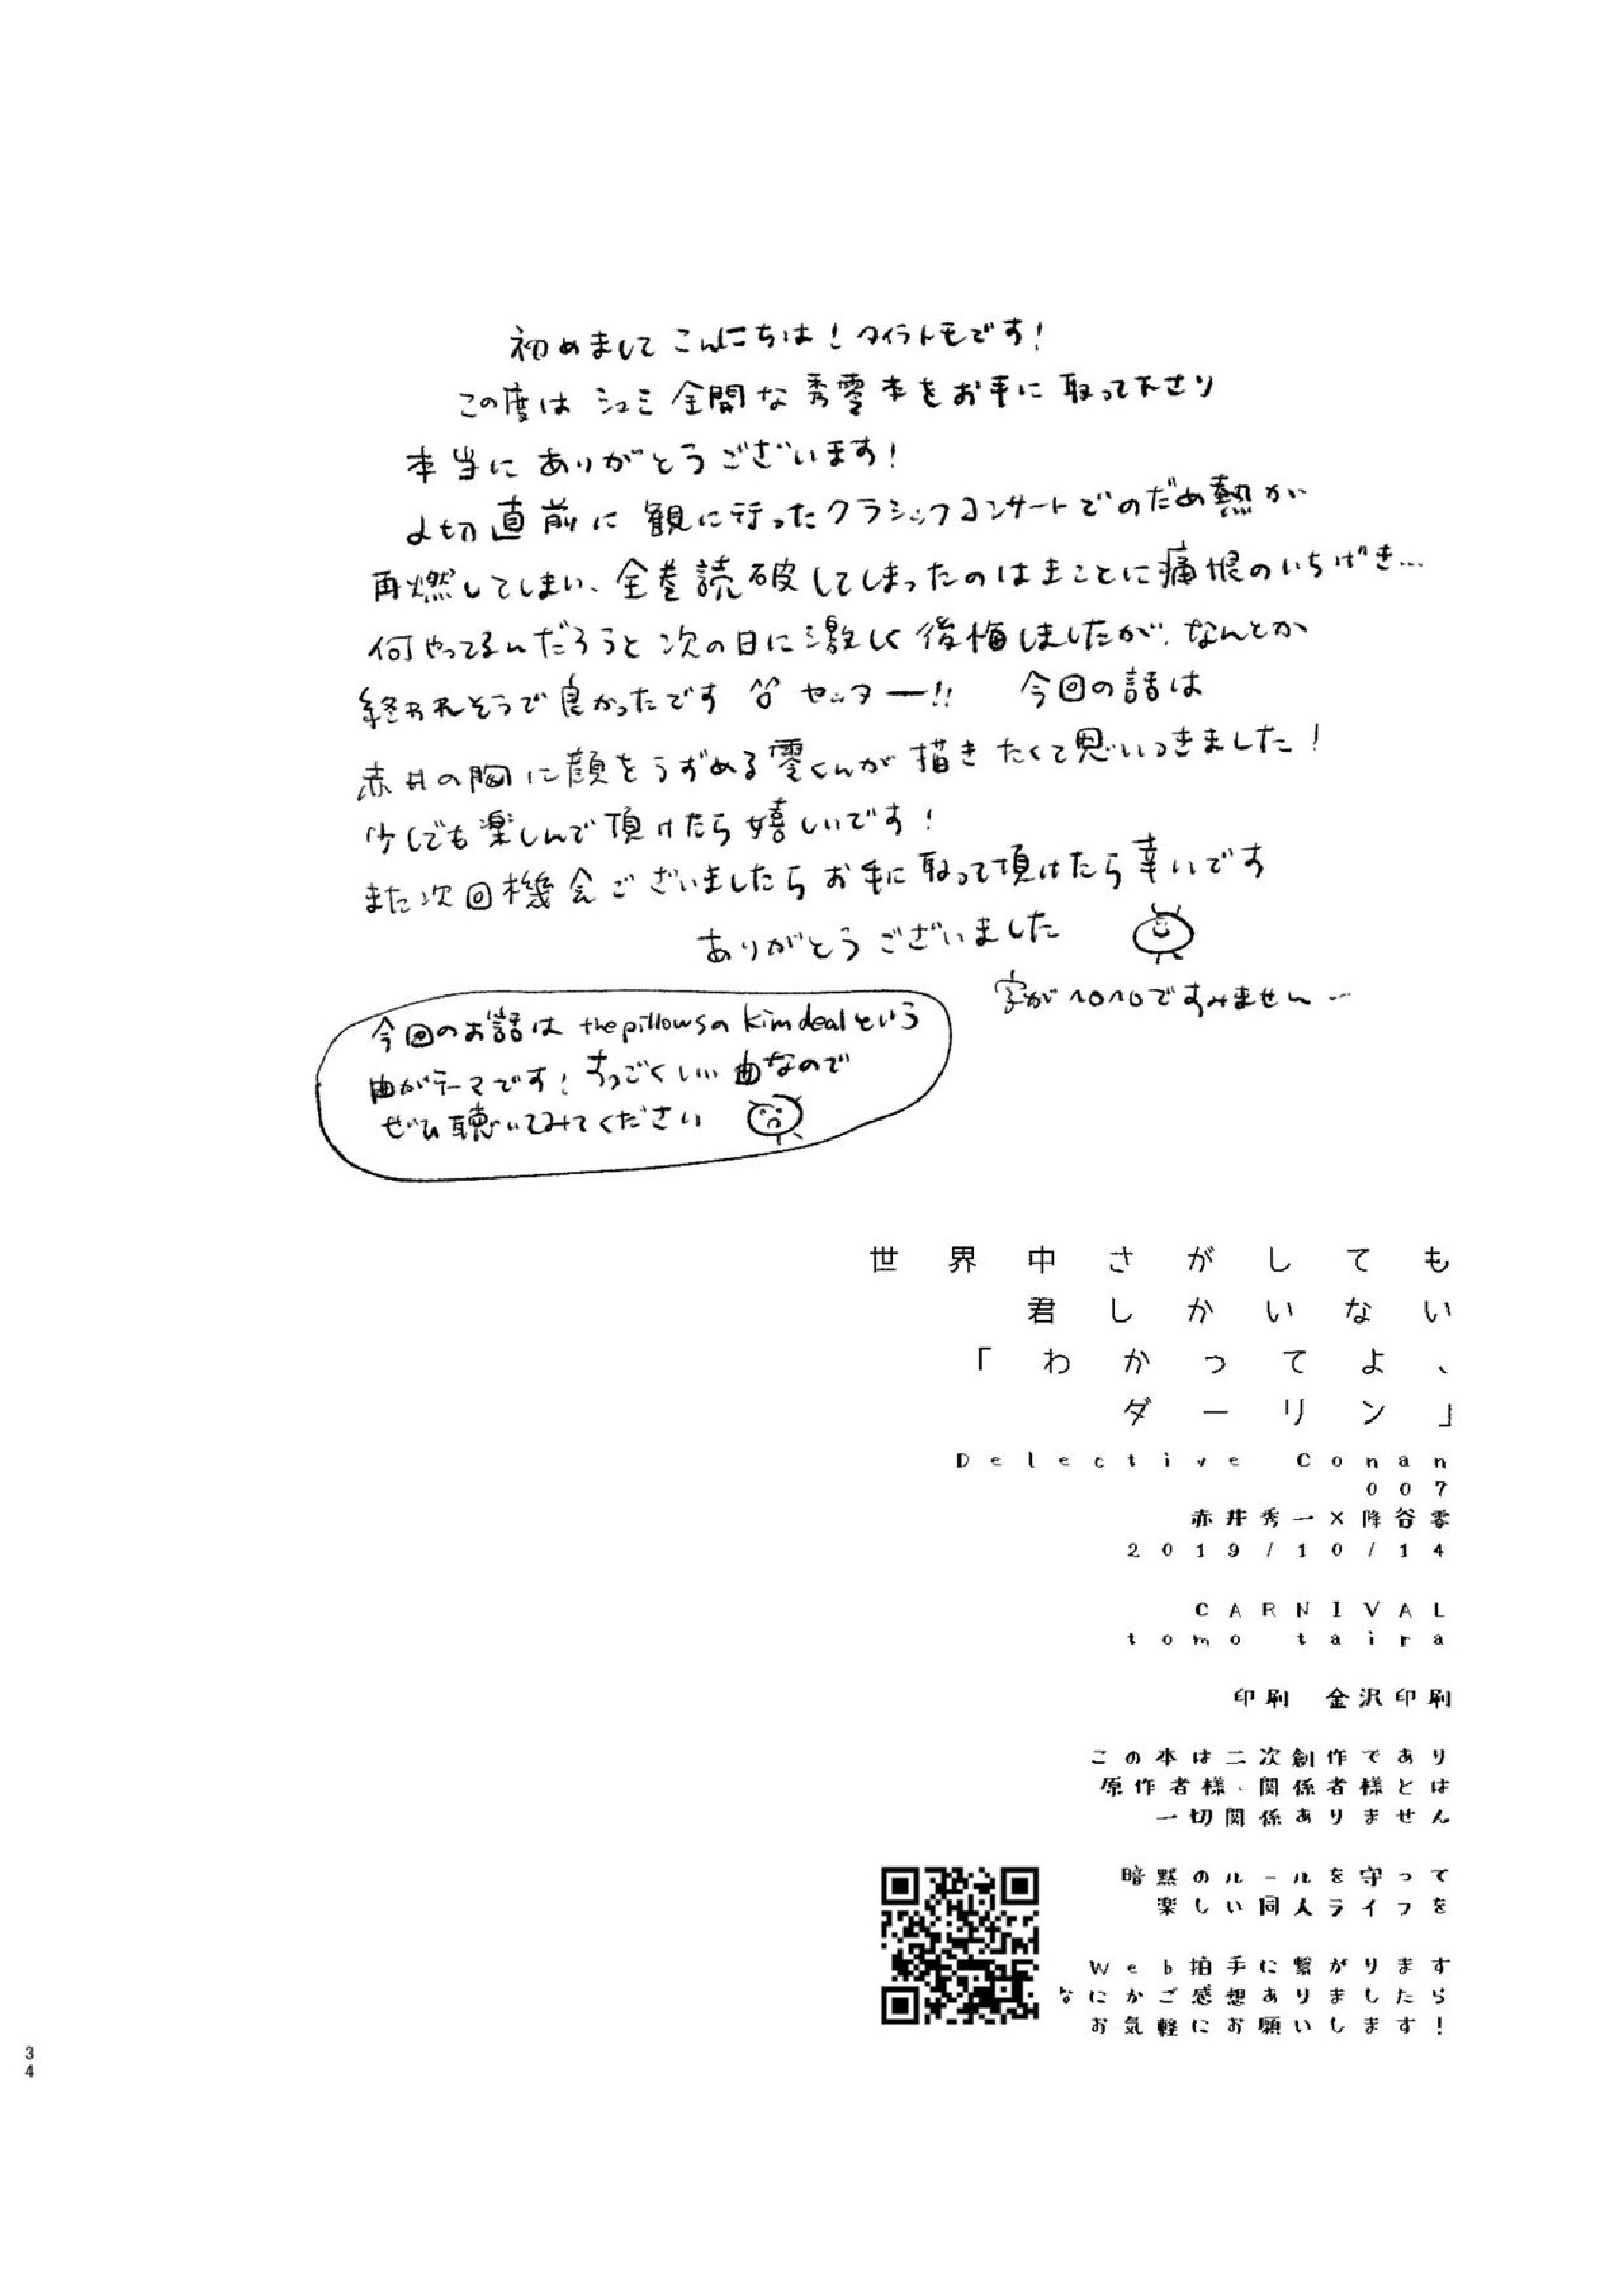 初めまして こんにちは！タイラトモです！
この度は シュミ全開な秀零本をお手に取って下さり
本当に ありがとうございます！
〆切直前に観に行ったクラシックコンサートでのだめ熱が
再燃してしまい、全巻読破してしまったのはまことに痛恨のいちげき…
何やってるんだろうと次の日に激しく後悔しましたが、なんとか
終われそうで良かったです セッター!! 今回の話は
赤井の胸に顔をうずめる零くんが描きたくて思いつきました！
少しでも楽しんで頂けたら嬉しいです！
また次回機会ございましたらお手に取って頂けたら幸いです
ありがとうございました
字がヘロヘロですみません…
今回のお話は the pillowsの kim dealという
曲がテーマです！すっごくいい曲なので
ぜひ聴いてみてください
世界中さがしても
君しかいない
「わかってよ、
ダーリン」
Detective Conan
007
赤井秀一×降谷零
2019/10/14
CARNIVAL
tomo taira
印刷 金沢印刷
この本は二次創作であり
原作者様、関係者様とは
一切関係ありません
暗黙のルールを守って
楽しい同人ライフを
Web拍手に繋がります
なにかご感想ありましたら
お気軽にお願いします！
34